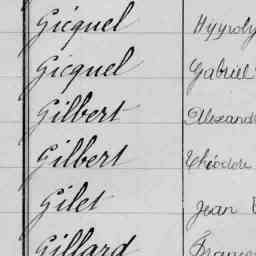 Gicquel Hyppoly
Gicquel Gabriel
Gilbert Alexand
Gilbert Théodore
Gilet Jean
Gillard Françoi